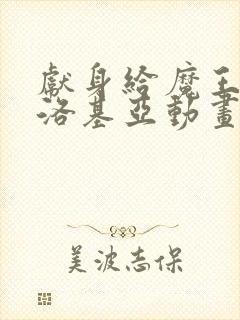 獻身給魔王
洛基亞動畫
美波志保